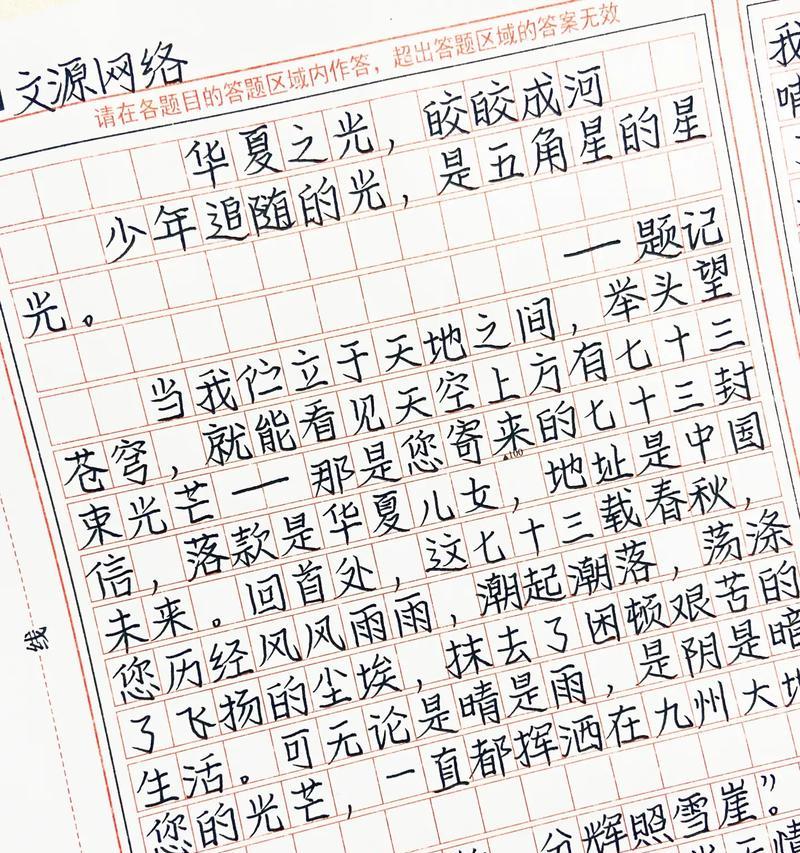 文源网络
请在各题目的答题区域内作答，超出答题区域的答案无效
华夏之光，皎皎成河
少年追随的光，是五角星的星
光。
——题记
当我伫立于天地之间，举头望
苍穹，就能看见天空上方有七十三
束光芒——那是您寄来的七十三封
▲100
信，落款是华夏儿女，地址是中国
未来。回首处，这七十三载春秋，
您历经风风雨雨，潮起潮落，荡涤
了飞扬的尘埃，抹去了困顿艰苦的
生活。可无论是晴是雨，是阴是暗
您的光芒，一直都挥洒在九州大地
分辉照雪崖”。
线
我